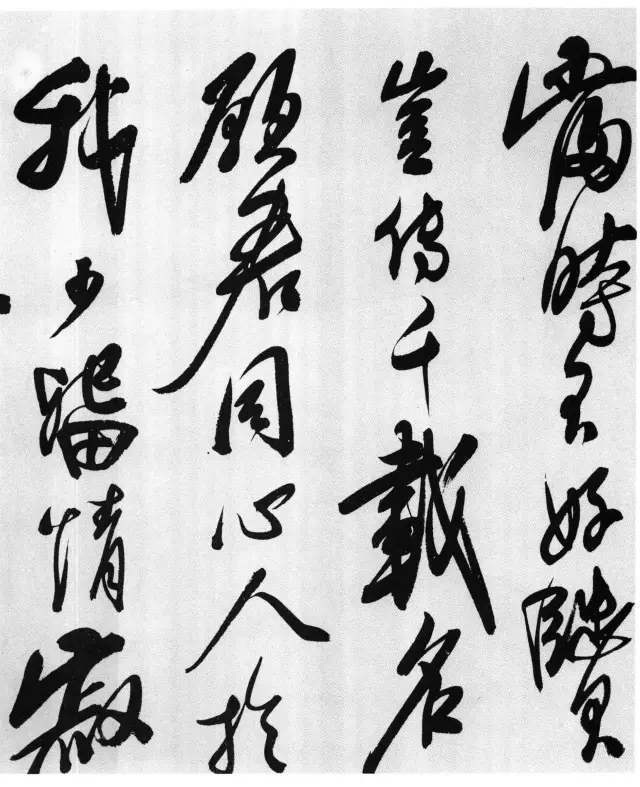 當時不好賢
豈傳千載名
願君同心人於
我少留情寂